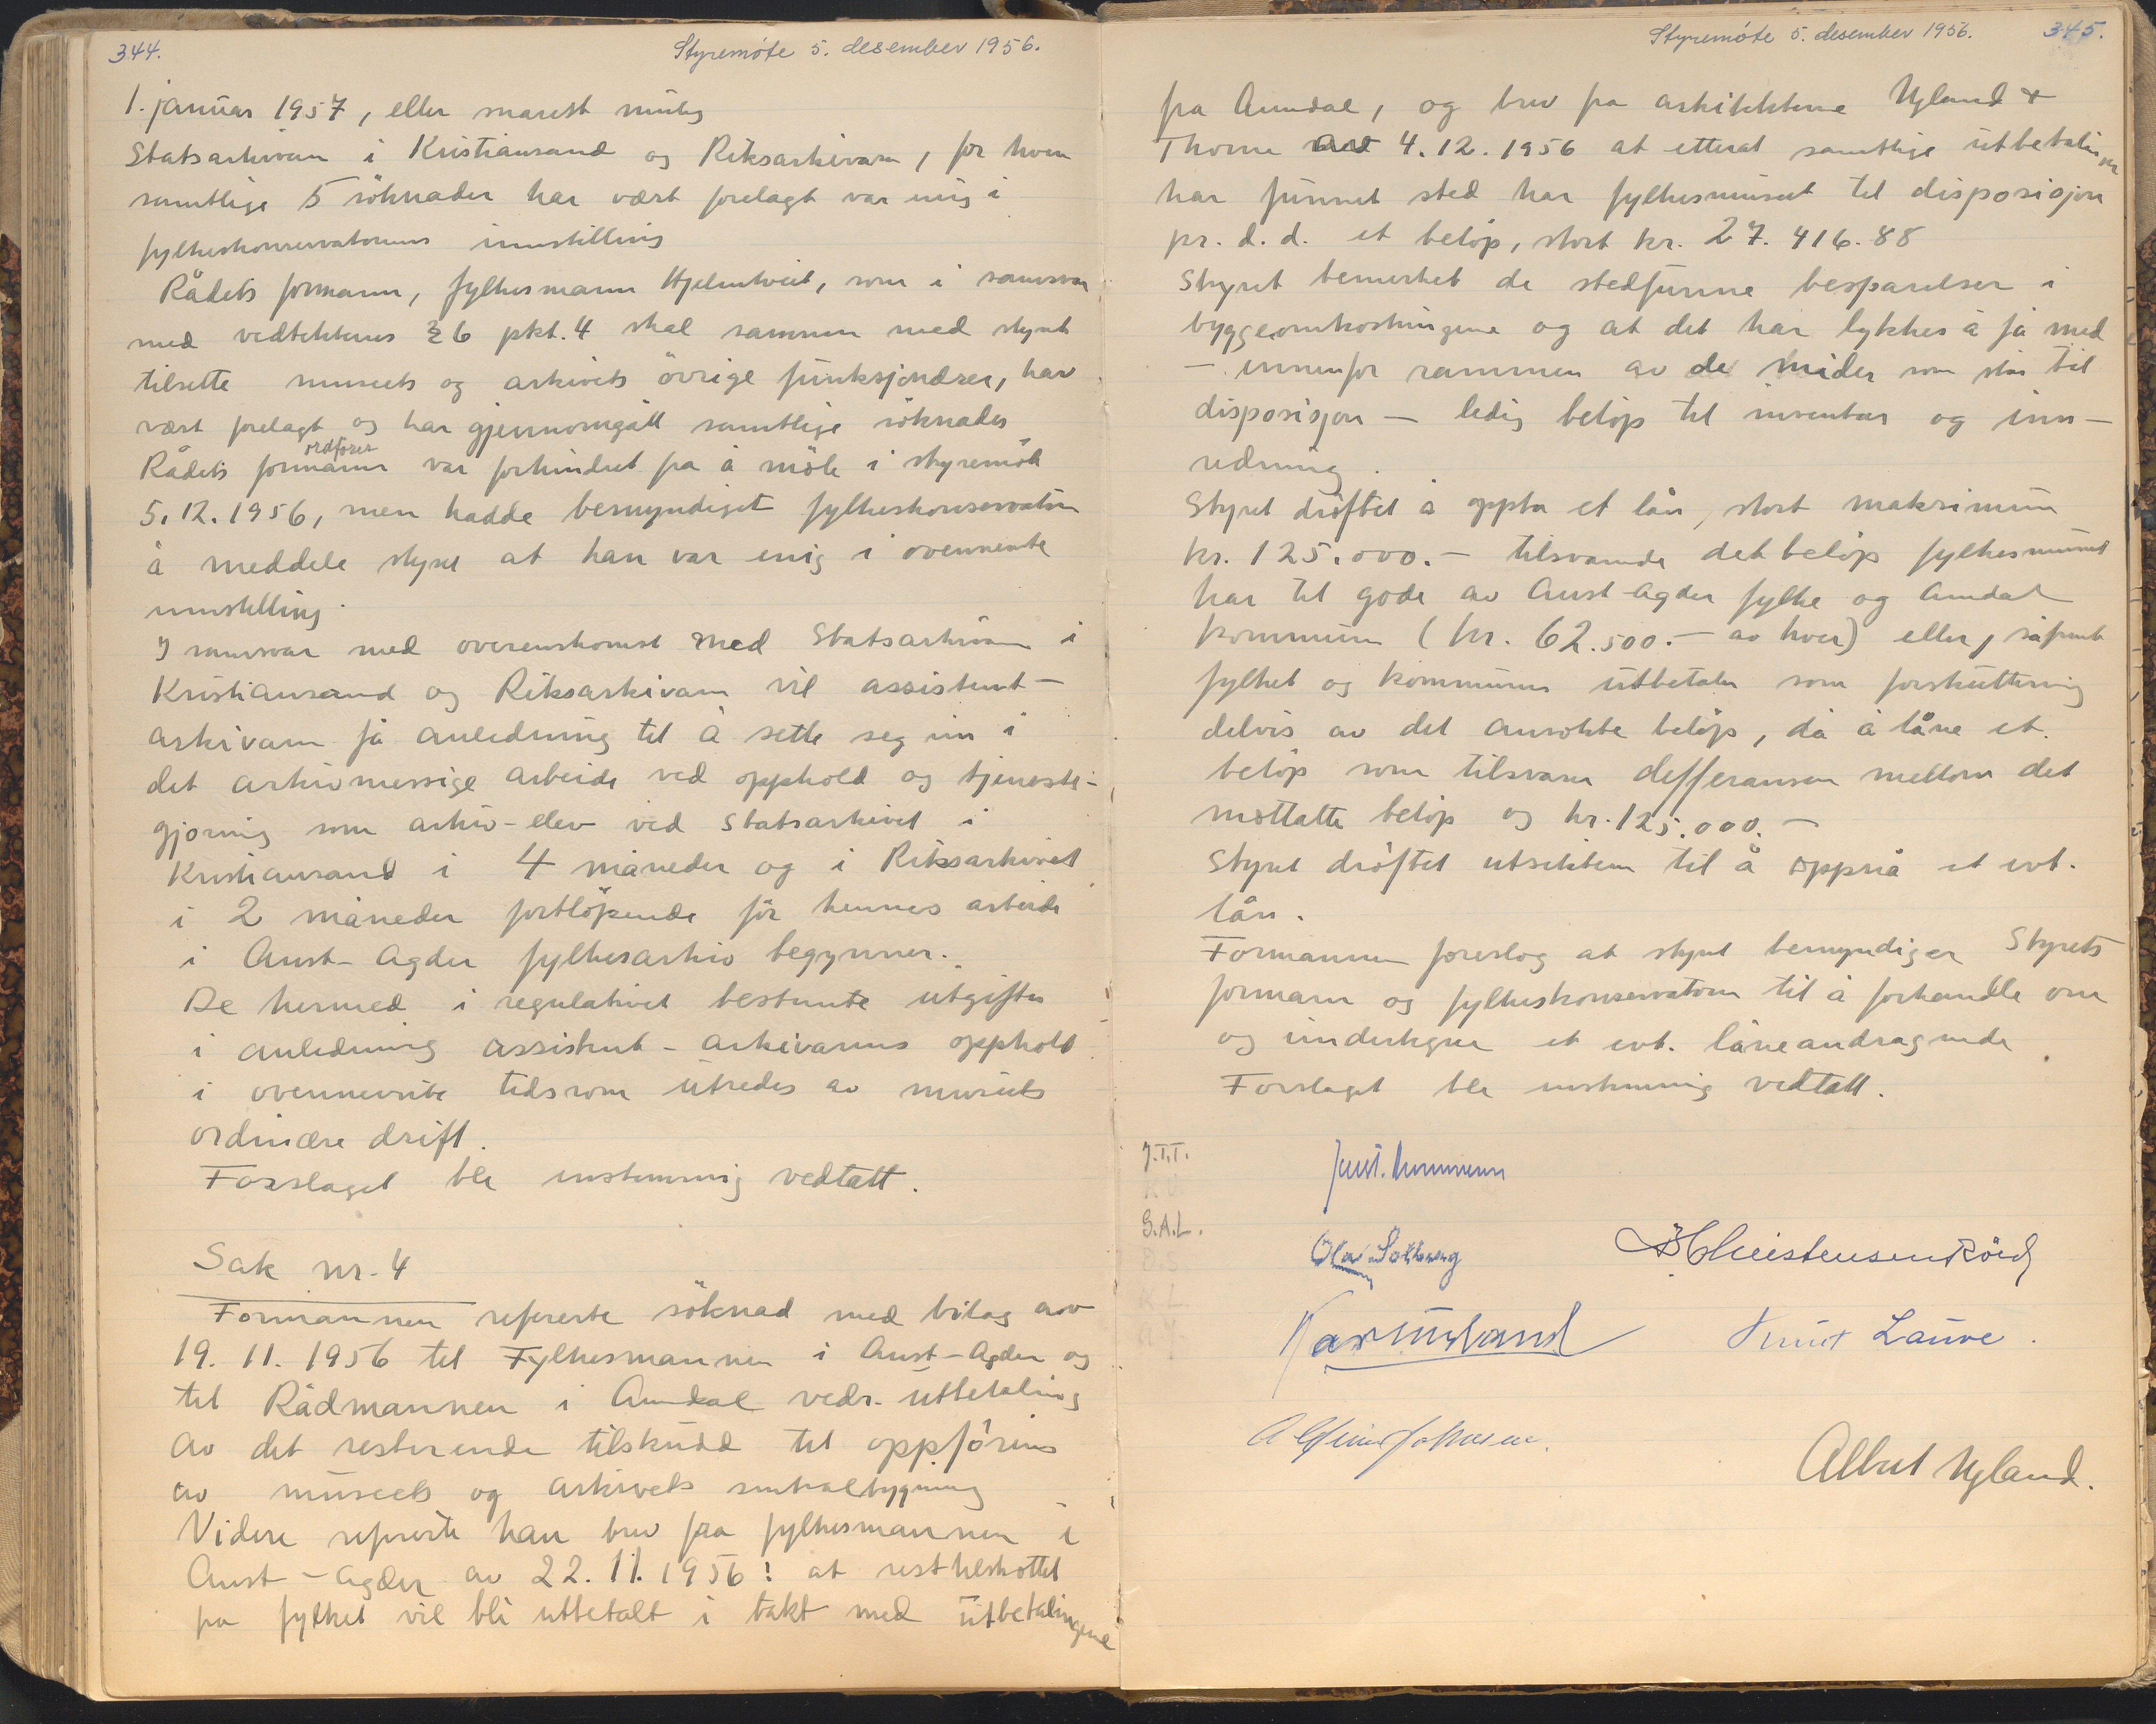 344.
Styremöte 5. desember 1956.
1. januar 1957, eller snarest mulig
Statsarkivaren i Kristiansand og Riksarkivaren, for hvem
samtlige 5 söknader har vært forelagt var enig i
fylkeskonservatorens innstilling
Rådets formann, fylkesmann Hjelmtveit, som i samsvar
med vedtektenes § 6 pkt. 4 skal sammen med styret
tilsette museets og arkivets övrige funksjonærer, har
vært forelagt og har gjennomgått samtlige söknader
ordförer
Rådets formann var forhindret fra å möte i styremöte
5.12.1956, men hadde bemyndiget fylkeskonservatoren
å meddele styret at han var enig i ovennevnte
innstilling.
I samsvar med overenskomst med Statsarkivaren i
Kristiansand og Riksarkivaren vil assistent-
arkivaren få anledning til å sette seg inn i
det arkivmessige arbeide ved opphold og tjeneste-
gjöring som arkiv-elev ved Statsarkivet i
Kristiansand i 4 måneder og i Riksarkivet
i 2 måneder fortlöpende för hennes arbeide
i Aust-Agder fylkesarkiv begynner.
De hermed i regulativet bestemte utgifter
i anledning assistent-arkivarens opphold
i ovennevnte tidsrom utredes av museets
ordinære drift.
Forslaget ble enstemmig vedtatt.
Sak nr. 4
Formannen refererte söknad med bilag av
19.11.1956 til Fylkesmannen i Aust-Agder og
til Rådmannen i Arendal vedr. utbetaling
av det resterende tilskudd til oppföring
av museets og arkivets sentralbygning
Videre refererte han brev fra fylkesmannen i
Aust-Agder av 22.11.1956: at resttilskottet
fra fylket vil bli utbetalt i takt med utbetalingene
Styremöte 5. desember 1956.
345.
fra Arendal, og brev fra arkitektene Ugland &
Thorne av 4.12.1956 at etterat samtlige utbetalinger
har funnet sted har fylkesmuseet til disposisjon
pr. d.d. et belöp, stort kr. 27.416.88
Styret bemerket de stedfunne besparelser i
byggeomkostningene og at det har lykkes å få med
- innenfor rammen av de midler som står til
disposisjon - ledig belöp til inventar og inn-
redning.
Styret dröftet å oppta et lån, stort maksimum
kr. 125.000.- tilsvarende det belöp fylkesmuseet
har til gode av Aust-Agder fylke og Arendal
kommune (kr. 62.500.- av hver) eller, såfremt
fylket og kommunen utbetaler som forskuttering
delvis av det ansökte belöp, da å låne et
belöp som tilsvarer defferansen mellom det
mottatte belöp og kr. 125.000.-
Styret dröftet utsiktene til å oppnå et evt.
lån.
Formannen foreslog at styret bemyndiger Styrets
formann og fylkeskonservatoren til å forhandle om
og undertegne et evt. låneandragende.
Forslaget ble enstemmig vedtatt.
J.T.T.
K.U.
G.A.L.
O.S.
K.L.
Olav Solberg
B Christensen Röed
Kar Uvsland
Knut Lauve.
Alfinn Johnsen.
Albert Ugland.